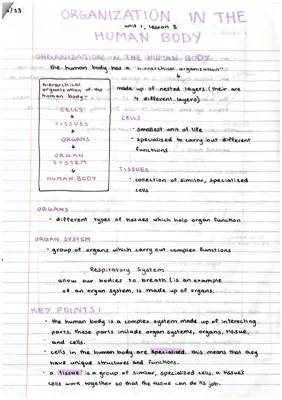 /23
ORGANIZATION IN THE
unit 1, lesson 3
HUMAN BODY
ORGANIZATION IN THE HUMAN BODY
the human body has a "hierarchical organization"
hierarchical
organization of the
human body:
CELLS
TISSUES
ORGANS
ORGAN
SYSTEM
HUMAN BODY
made up of nested layers (their are
4 different layers)
CELLS
- smallest unit of life
- specialized to carry out different
functions
TISSUES
- collection of similar, specialized
cells
ORGANS
- different types of tissues which help organ function
ORGAN SYSTEM
- group of organs which carry out complex functions
Respiratory System
allow our bodies to breath (is an example
of an organ system, is made up of organs.
KEY POINTS:
• the human body is a complex system made up of interacting
parts. these parts include organ systems, organs, tissue,
and cells.
• cells in the human body are specialised. this means that they
have unique structures and functions.
• a tissue is a group of similar, specialized cells. a tissues
cells work together so that the tissue can do its job.